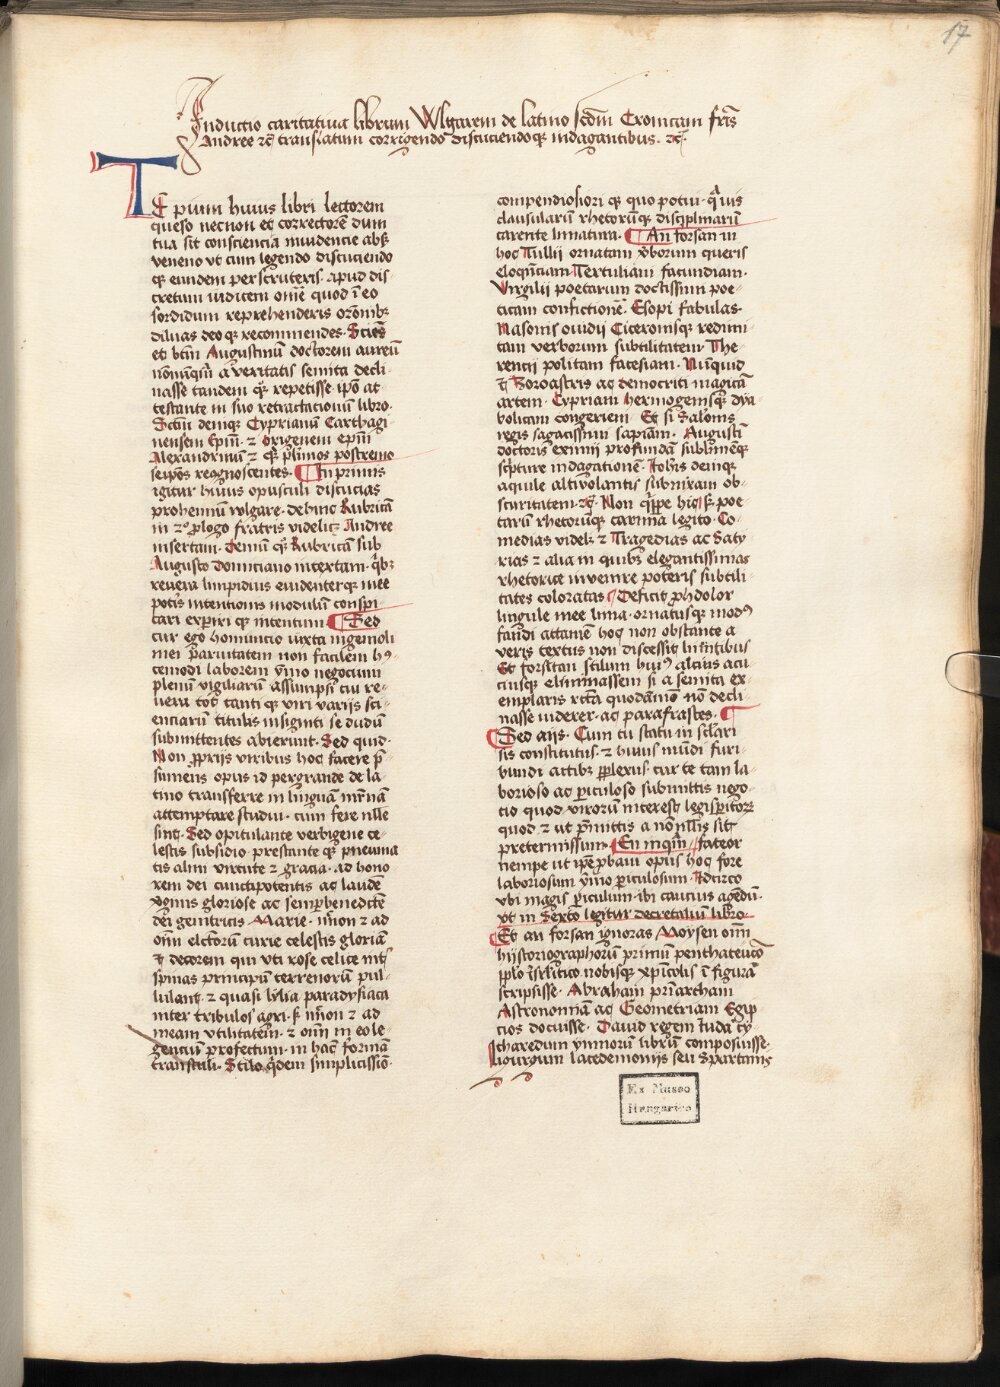 17
Inductio caritatiua librum Wlgarem de latino scdm Cronicam fris
Andree rc translatum corrigendo discuciendoque indagantibus. rc.
TE pium huius libri lectorem
queso necnon et correctorē dum
tua sit consciencia inuidencie absque
veneno vt cum legendo discuciendo
que eundem perscruteris. apud dis-
cretum iudicem omē quod ī eo
sordidum reprehenderis
diluas deo que recommendes. Sciēs
et btm Augustinum doctorem aureū
a veritatis semita decli-
nasse tandem repetisse. ipo at-
testante in suo retractacionū libro.
Sctm demque Cyprianū Carthagi-
nensem Epm. z Origenem epm
Alexandrinū z postremo
seipos recognoscentes. In primis
igitur huius opusculi discucias
prohemiū vulgare. dehinc Rubricā
in plogo fratris videlicz Andree
insertam. Demū Rubricam sub
Augusto Domiciano intextam.
reuera limpidius euidenterque mee
potis intentionis modulū conspi-
cari experiri que intentum. Sed
cur ego homuncio iuxta ingenioli
mei paruitatem non facilem
cemodi laborem ymo negocium
plenū vigiliarū assumpsi cui re-
uera tot tanti que viri varijs sci-
enciarū titulis insigniti se dudū
submittentes abierunt. Sed quid.
Non pprijs viribus hoc facere p-
sumens opus id pergrande de la-
tino transferre in linguā mrnā
attemptare studui. cum fere nlle
sint. Sed opitulante verbigene ce-
lestis subsidio prestante que pneuma-
tis almi virtute z gracia. ad hono-
rem dei cunctipotentis ac laudē
vginis gloriose ac semp benedictē
dei genitricis Marie. nnon z ad
omn electorū curie celestis gloriā
z decorem qui vti rose celice int
spinas principū terrenorū pul-
lulant. z quasi lylia paradysiaca
inter tribulos agri. nnon z ad
meam vtilitatem. z omn in eo le-
genciū profectum. in hac formā
transtuli. Stilo qdem simplicissiō
compendiosiori que quo potui. quis
clausularū rhetorūque disciplinariū
carente limatura. An forsan in
hoc Tullij ornatam verborum queris
eloqnciam. Tertuliani facundiam.
Virgilij poetarum doctissimi poe-
ticam confictionē. Esopi fabulas.
Nasonis ouidij Ciceronisque redimi-
tam verborum subtilitatem. The-
rencij politam facesiam. Nunquid
z Zoroastris ac democriti magicā
artem. Cypriani hermogenisque dya-
bolicam congeriem. Et si Salōnis
regis sagacissimi sapiam. Augusti
doctoris eximij profundā sublimēque
scpture indagationē. Johis demque
aquile altiuolantis subnixam ob-
scuritatem. rc. Non qppe hic poe-
tarū rhetorūque carmina legito. Co-
medias videlz z Tragedias ac Saty-
rias z alia in quibus elegantissimas
rhetorice inuenire poteris subtili-
tates coloratas. Deficit phdolor
lingule mee lima. ornatusque modus
fandi attamē hoc non obstante a
veris textus non discessit intentibus
Et forsitan stilum huius alcius acu-
ciusque eliminassem si a semita ex-
emplaris rcta quodāmō nō decli-
nasse viderer. ac parafrastes.
Sed aijs. Cum tu statu in sclari
sis constitutus. z huius mūdi furi-
bundi actibus pplexus. cur te tam la-
borioso ac piculoso submittis nego-
cio quod virorū interest legispitorum
quod z vt pmittis a nōnllis sit
pretermissum. En inquā fateor
nempe vt ipē pbaui opus hoc fore
laboriosum ymo piculosum. Idcirco
vbi magis piculum. ibi caucius agēdū.
vt in Sexto legitur decretalium libro.
Et an forsan ignoras Moysen omn
hystoriographorū primū penthateucō
pplo israhlitico nobisque xpicolis ī figurā
scripsisse. Abraham priarcham
Astronomiā ac Geometriam Egip-
cios docuisse. Dauid regem iuda cy-
tharedum ymnorū librū composuisse.
Licurgum lacedemonijs seu Spartanis
Ex Museo
Hungarico